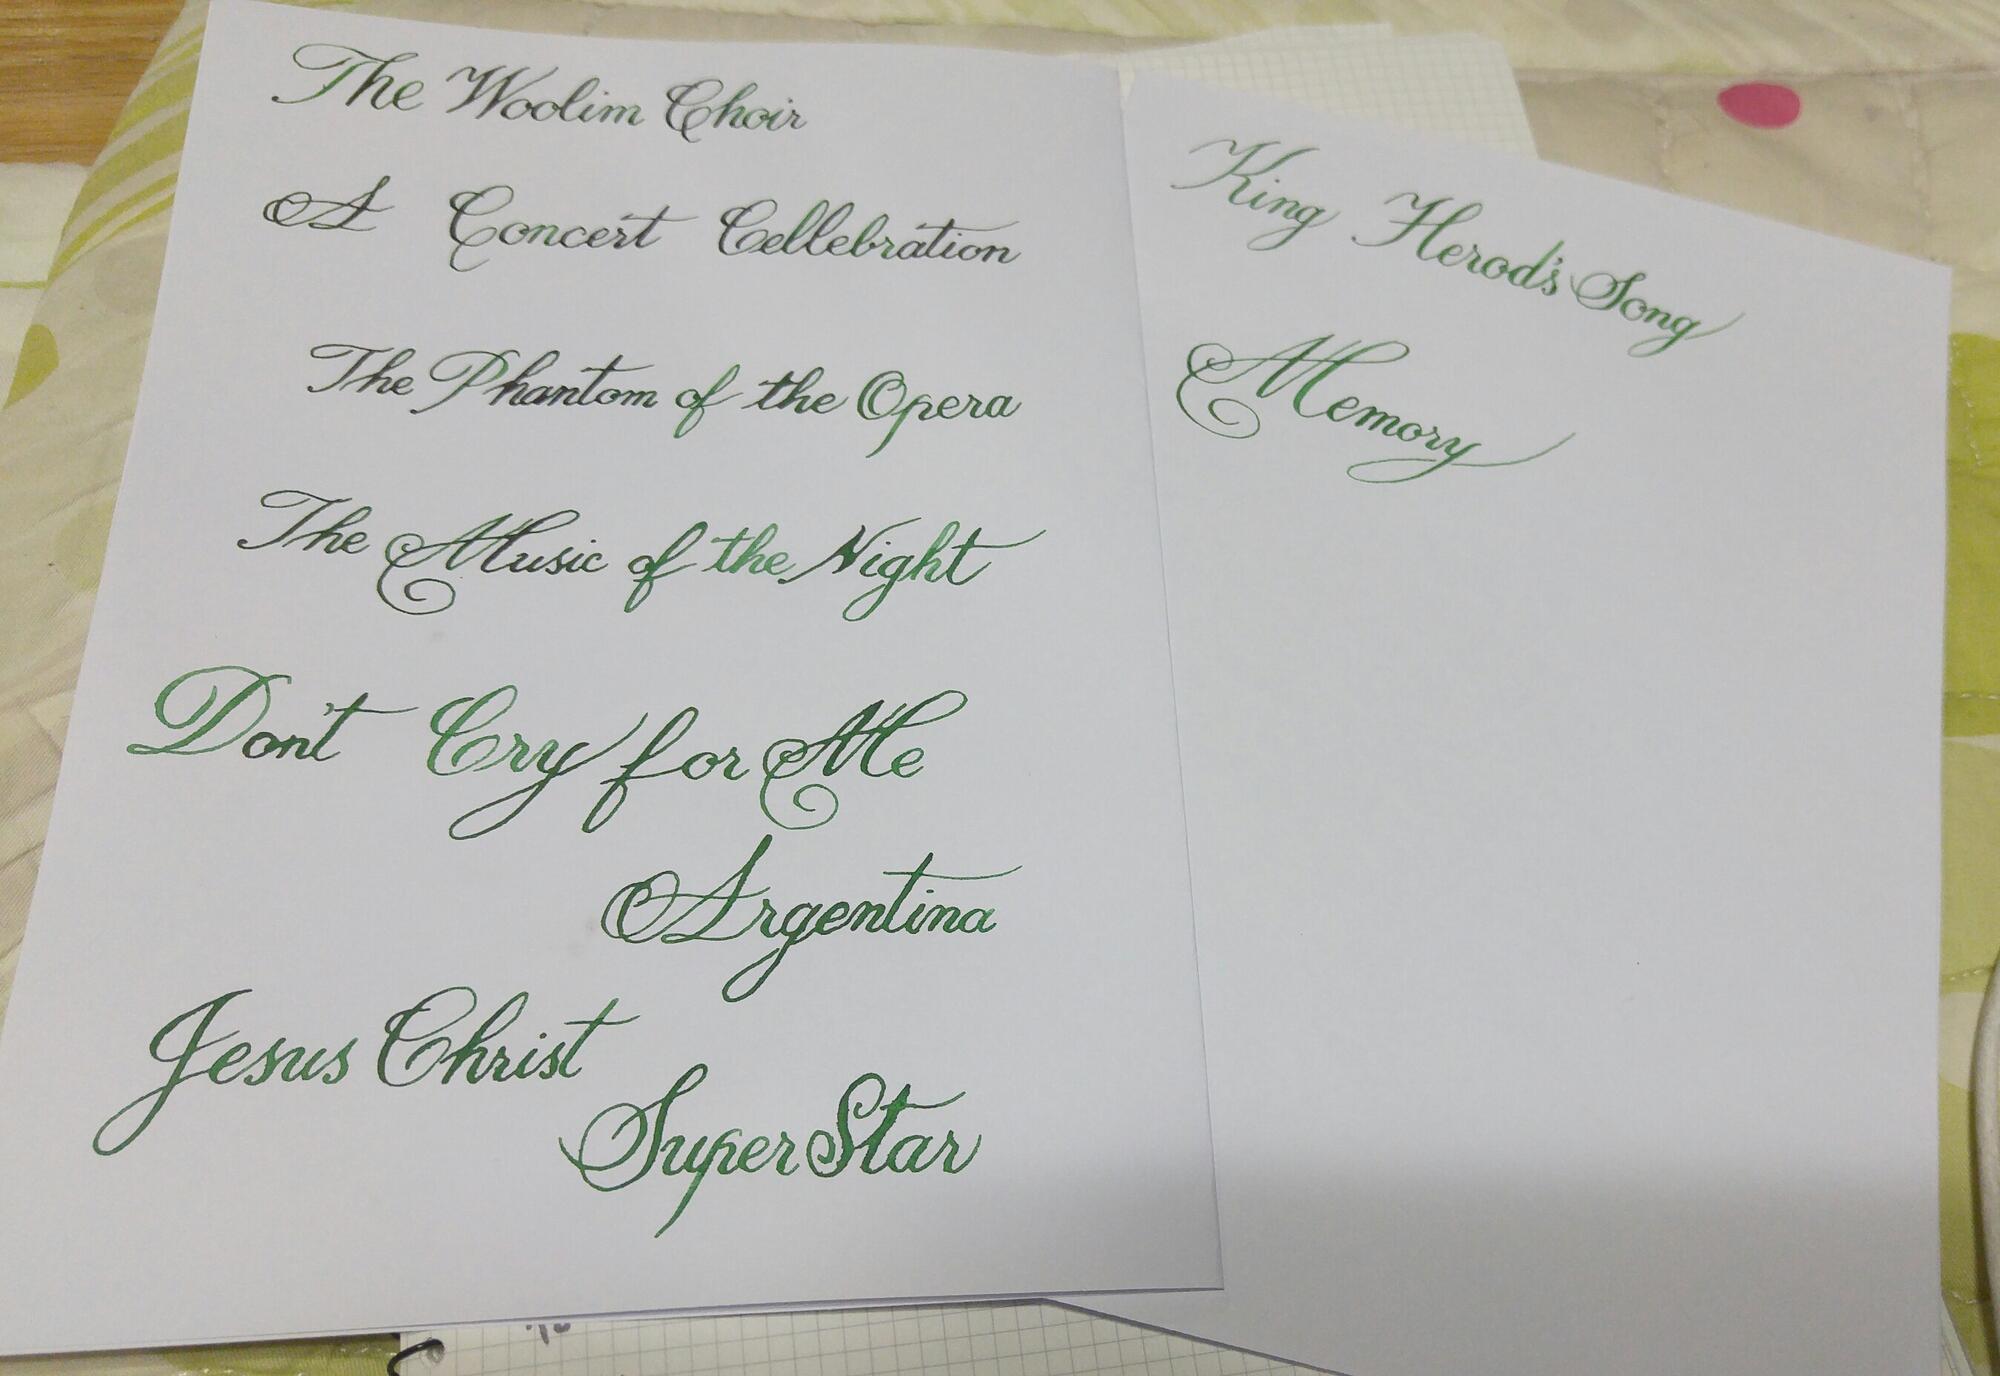 The Woolim Choir
A Concert Cellebration
The Phantom of the Opera
The Music of the Night
Don't Cry for Me
Argentina
Jesus Christ
SuperStar
King Herod's Song
Memory